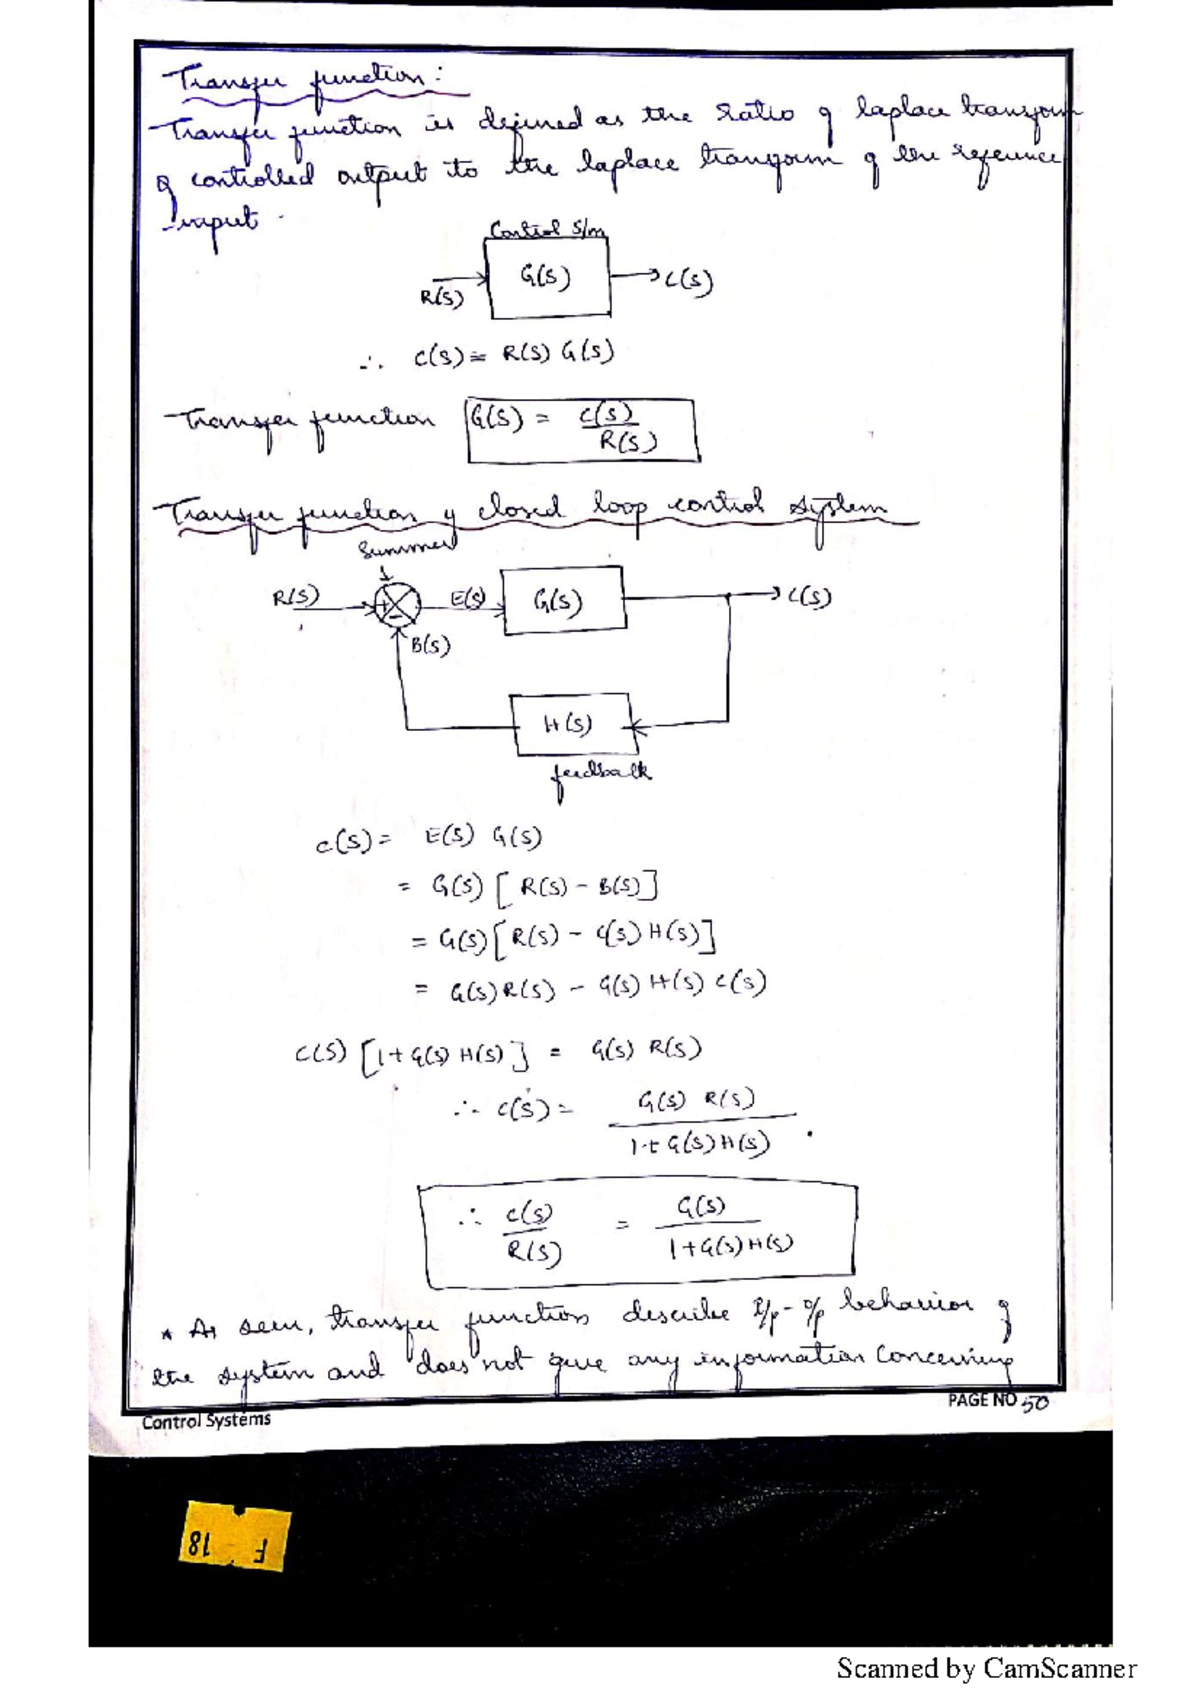 Transfer function:
Transfer function is defined as the ratio of laplace transform
of controlled output to the laplace transform of the reference
input.
Control S/m
R(S) G(S) C(S)
∴ C(S) = R(S) G(S)
Transfer function G(S) = C(S)/R(S)
Transfer function of closed loop control system
Summer
R(S) + - E(S) G(S) C(S)
B(S)
H(S)
feedback
C(S) = E(S) G(S)
= G(S) [R(S) - B(S)]
= G(S) [R(S) - C(S) H(S)]
= G(S) R(S) - G(S) H(S) C(S)
C(S) [1+G(S) H(S)] = G(S) R(S)
∴ C(S) = G(S) R(S)/1+G(S)H(S) .
∴ C(S)/R(S) = G(S)/1+G(S)H(S)
* As seen, transfer function describe I/p - O/p behavior of
the system and does not give any information concerning
PAGE NO 50
Control Systems
F 18
Scanned by CamScanner